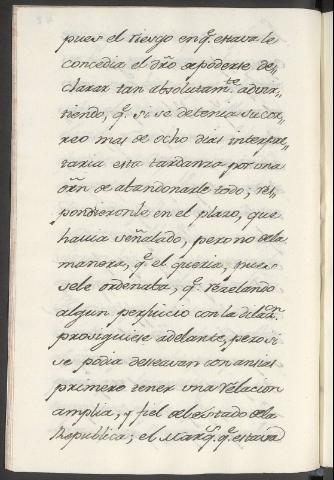 pues el riesgo en q.e estava le
concedia el dr̃o a poderse de„
clarar tan absolutam.te advir„
tiendo, q.e si se detenia su cor„
reo mas de ocho dias interpre„
taria esta tardanza por una
orn̄ de abandonarle todo; res„
pondieronle en el plazo, que
havia señalado, pero no de la
manera, q.e el queria, pues
se le ordenaba, q.e rezelando
algun perjuicio con la dilac.on
prosiguiese adelante, pero si
se podia deseavan con ansias
primero tener una relacion
amplia, y fiel del estado de la
Republica; el Marq.s q.e estava